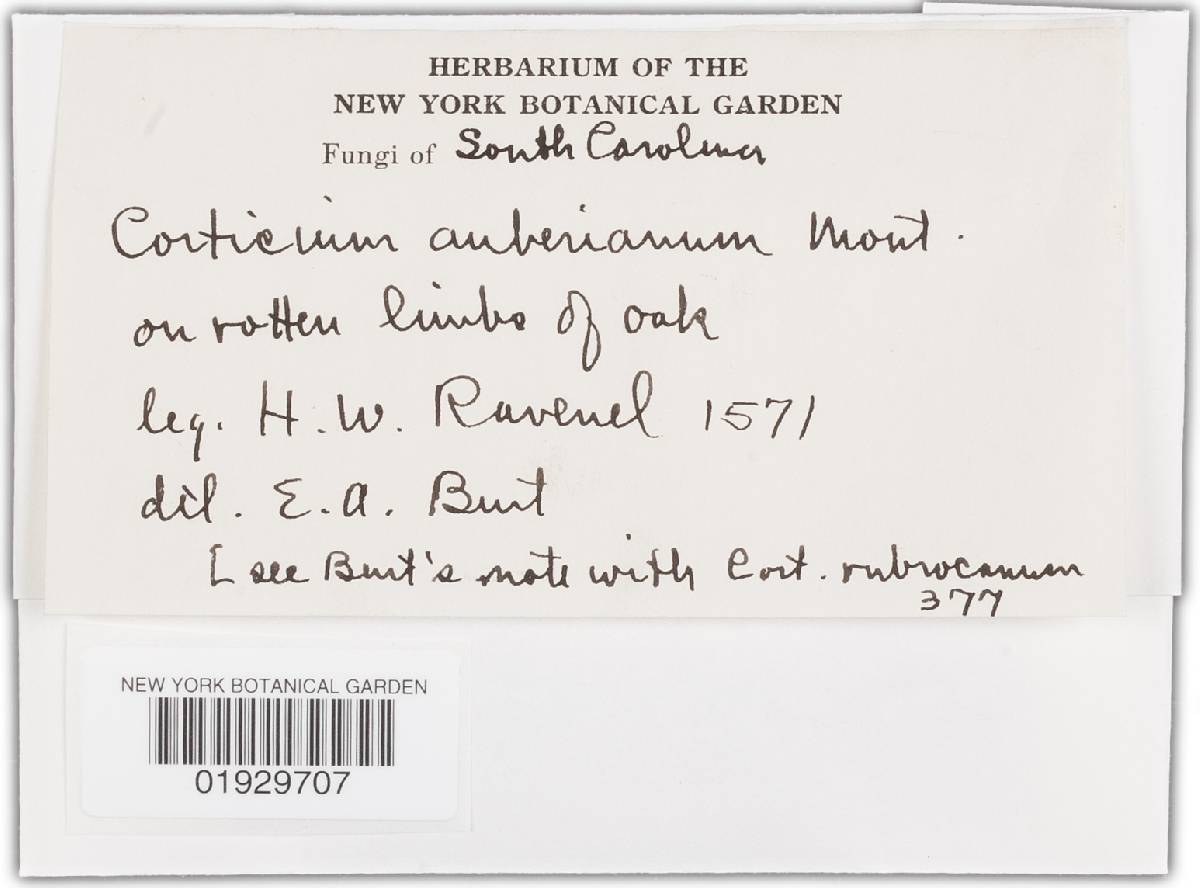 HERBARIUM OF THE
NEW YORK BOTANICAL GARDEN
Fungi of South Carolina
Corticium auberianum Mont.
on rotten limbs of oak
leg. H. W. Ravenel 1571
dil. E. A. Burt
[ see Burt's note with Cort. rubrocanum
377
NEW YORK BOTANICAL GARDEN
01929707